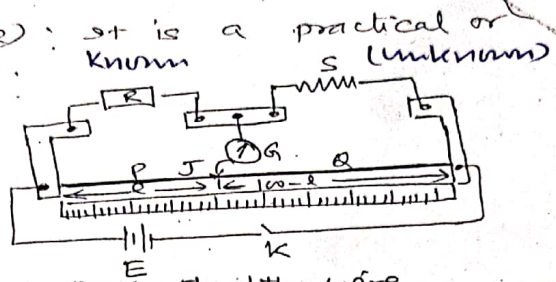 : It is a practical or
Known (unknown)
S
R
G
P J Q
l 100-l
E K